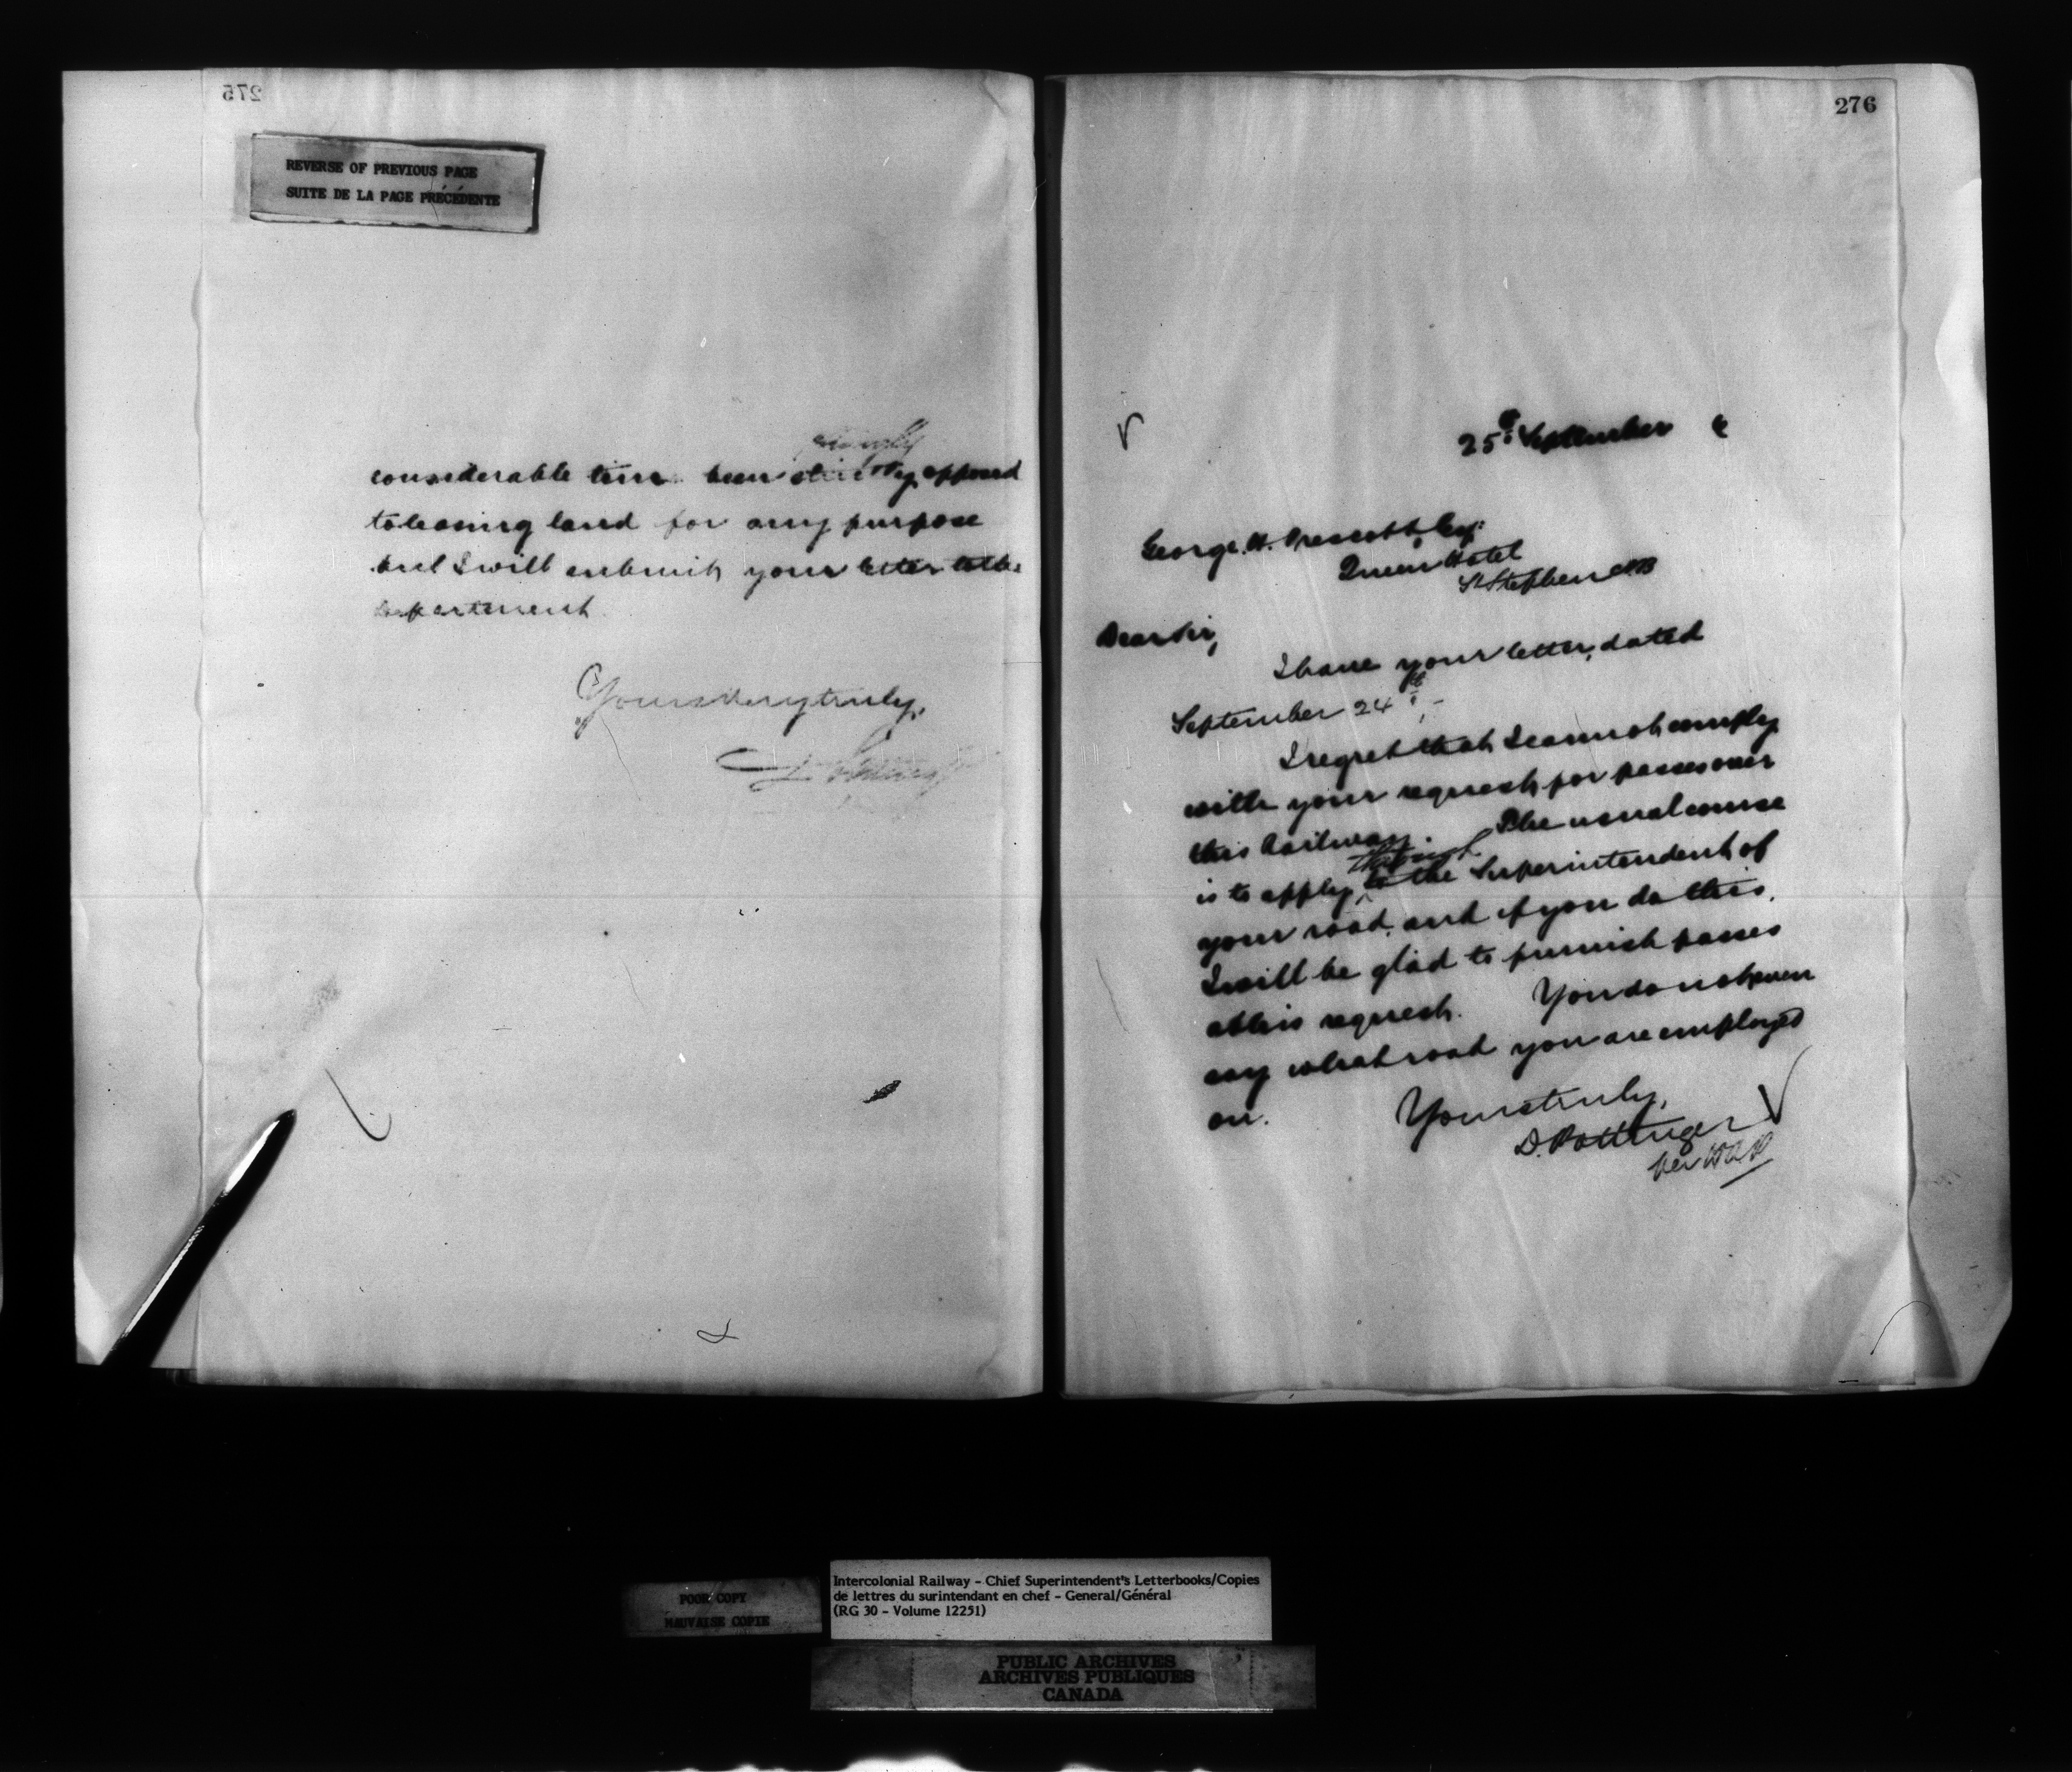 275
REVERSE OF PREVIOUS PAGE
SUITE DE LA PAGE PRÉCÉDENTE
considerable time been opposed
to leasing land for any purpose
but I will submit your letter to the
Department
Yours very truly,
276
25th September
George H. Prescott, Esq:
Queen Hotel
St Stephen NB
Dear Sir,
I have your letter, dated
September 24th,-
I regret that I cannot comply
with your request for passes over
this Railway. The usual course
through
is to apply to the Superintendent of
your road, and if you do this,
I will be glad to furnish passes
at his request. You do not even
say what road you are employed
on.
Yours truly,
D. Pottinger
per
POOR COPY
MAUVAISE COPIE
Intercolonial Railway - Chief Superintendent's Letterbooks/Copies
de lettres du surintendant en chef - General/Général
(RG 30 - Volume 12251)
PUBLIC ARCHIVES
ARCHIVES PUBLIQUES
CANADA